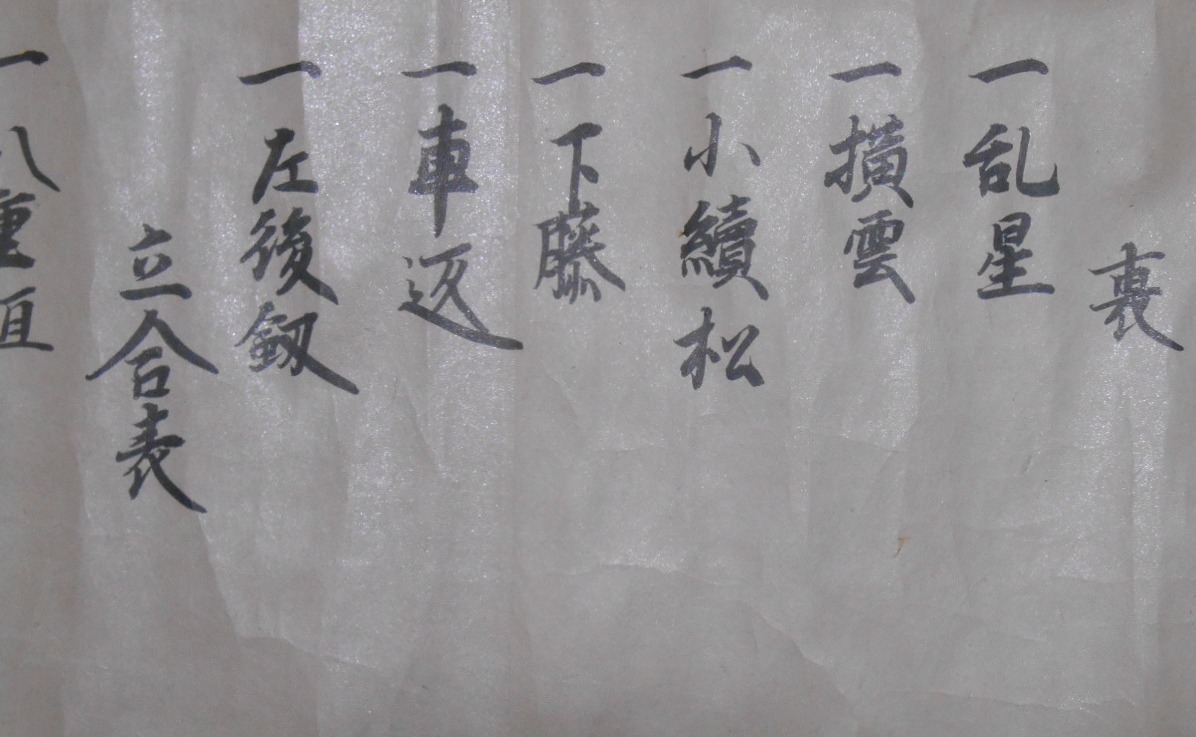 裏
一乱星
一横雲
一小續松
一下藤
一車返
一左後釼
立合表
一八重垣